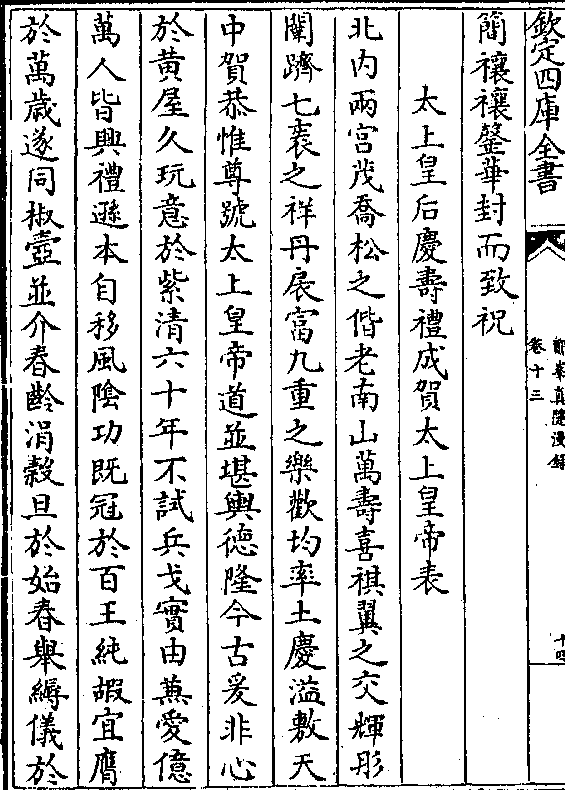 欽定四庫全書
鄮峯真隱漫錄
卷十三
十四
簡禳禳罄華封而致祝
太上皇后慶壽禮成賀太上皇帝表
北内兩宫茂喬松之偕老南山萬壽喜祺翼之交輝彤
闈躋七袠之祥丹扆富九重之樂歡均率土慶溢敷天
中賀恭惟尊號太上皇帝道並堪輿德隆今古爰非心
於黄屋久玩意於紫清六十年不試兵戈實由兼愛億
萬人皆興禮遜本自移風隂功既冠於百王純嘏宜膺
於萬歲遂同椒壼並介春齡涓穀旦於始春舉縟儀於